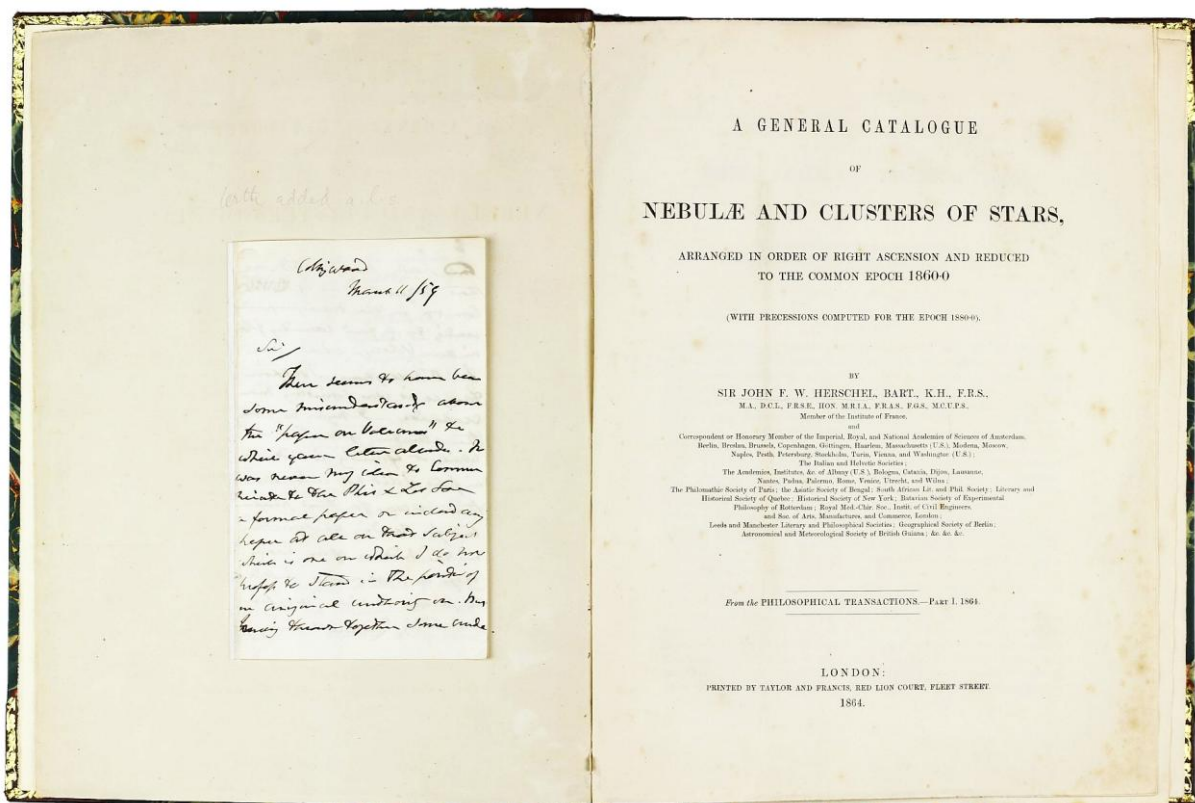 added a.l.s
Collingwood
March 11 /59
Sir/
There seems to have been
some misunderstanding about
the "paper on Volcanos" to
which your letter alludes. It
was never my idea to commu
nicate to the Phil & Lit Soc
a formal paper or indeed any
paper at all on that subject
which is one on which I do not
profess to stand in the position of
an original authority on. But
having thrown together some
A GENERAL CATALOGUE
OF
NEBULÆ AND CLUSTERS OF STARS,
ARRANGED IN ORDER OF RIGHT ASCENSION AND REDUCED
TO THE COMMON EPOCH 1860·0
(WITH PRECESSIONS COMPUTED FOR THE EPOCH 1880·0).
BY
SIR JOHN F. W. HERSCHEL, BART., K.H., F.R.S.,
M.A., D.C.L., F.R.S.E., HON. M.R.I.A., F.R.A.S., F.G.S., M.C.U.P.S.,
Member of the Institute of France,
and
Correspondent or Honorary Member of the Imperial, Royal, and National Academies of Sciences of Amsterdam,
Berlin, Breslau, Brussels, Copenhagen, Göttingen, Haarlem, Massachusetts (U.S.), Modena, Moscow,
Naples, Pesth, Petersburg, Stockholm, Turin, Vienna, and Washington (U.S.);
The Italian and Helvetic Societies;
The Academies, Institutes, &c. of Albany (U.S.), Bologna, Catania, Dijon, Lausanne,
Nantes, Padua, Palermo, Rome, Venice, Utrecht, and Wilna;
The Philomathic Society of Paris; the Asiatic Society of Bengal; South African Lit. and Phil. Society; Literary and
Historical Society of Quebec; Historical Society of New York; Batavian Society of Experimental
Philosophy of Rotterdam; Royal Med.-Chir. Soc., Instit. of Civil Engineers,
and Soc. of Arts, Manufactures, and Commerce, London;
Leeds and Manchester Literary and Philosophical Societies; Geographical Society of Berlin;
Astronomical and Meteorological Society of British Guiana; &c. &c. &c.
From the PHILOSOPHICAL TRANSACTIONS.—PART I. 1864.
LONDON:
PRINTED BY TAYLOR AND FRANCIS, RED LION COURT, FLEET STREET.
1864.